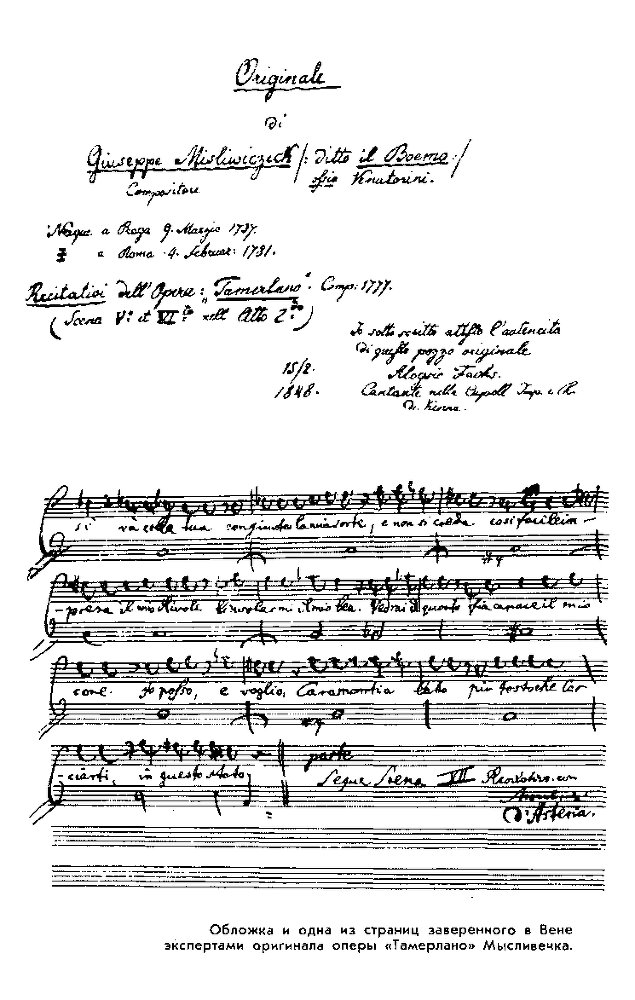 Originale
di
Giuseppe Misliwiczek /: ditto il Boemo :/
Compositore ossia Venatorini.
Nacque a Praga 9. Marzio 1737.
a Roma 4. Februar: 1781.
Recitativi dell'Opera: „Tamerlano". Comp: 1777.
(Scena V: et VI: nell Atto 2:)
Io sotto scritto attesto l'autencita
di questo pezzo originale
15/2. Aloysio Fuchs.
1848. Cantante nella Capell Imp. e R.
di Vienna.
si và colla tua congiunta la mia sorte, e non si creda così facileim-
-presa il mio
core. Io posso, e voglio, Cara
-ciarti, in questo stato, parte
Segue Scena VII
d'Asteria.
Обложка и одна из страниц заверенного в Вене
экспертами оригинала оперы «Тамерлано» Мысливечка.